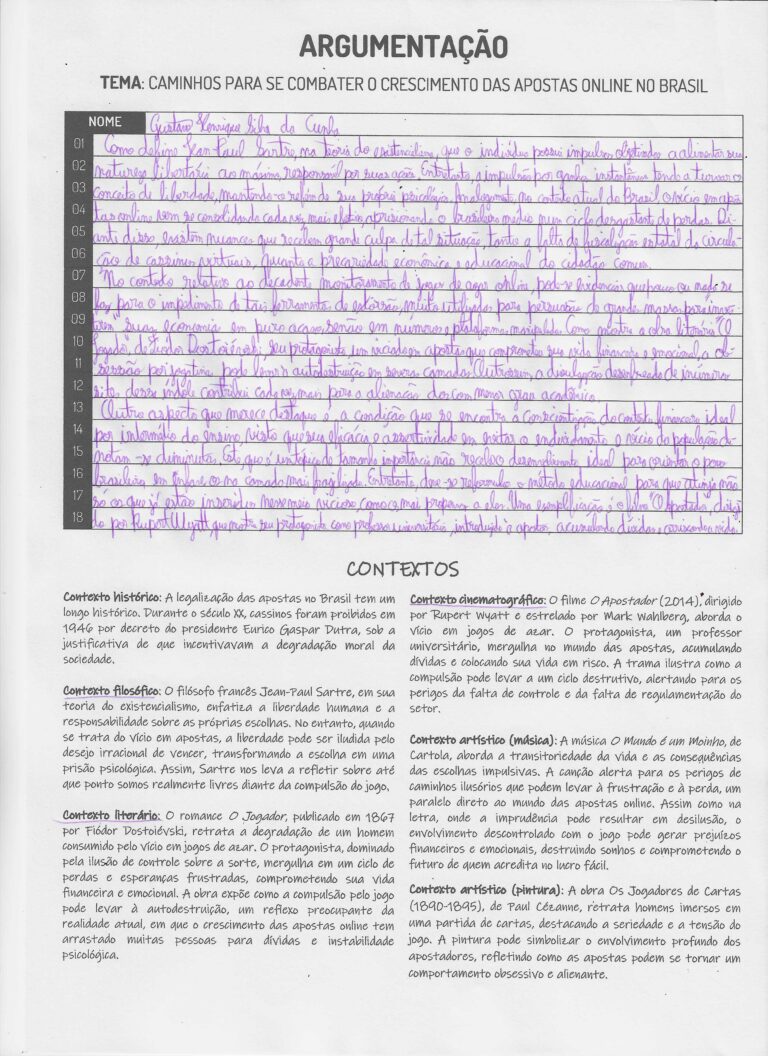 ARGUMENTAÇÃO
TEMA: CAMINHOS PARA SE COMBATER O CRESCIMENTO DAS APOSTAS ONLINE NO BRASIL
NOME Gustavo Henrique Silva da Cunha
01 Como define Jean-Paul Sartre, na teoria do existencialismo, que o indivíduo possui impulsos objetivados a alimentar sua
02 natureza libertária ao máximo, responsável por suas ações. Entretanto, a impulsão por ganha instantânea tende a tornar o
03 conceito de liberdade, mantendo-o refém de sua própria psicologia. Analogamente, no contexto atual do Brasil, o vício em apos-
04 tas online vem se consolidando cada vez mais efetivo, aprisionando o brasileiro médio num ciclo desgastante de perdas. Di-
05 ante disso, existem nuances que recebem grande culpa de tal situação, tanto a falta de fiscalização estatal da circula-
06 ção de cassinos virtuais, quanto a precariedade econômica e educacional do cidadão comum.
07 No contexto relativo ao decadente monitoramento de jogos de azar online, pode-se evidenciar que pouco ou nada se
08 faz para o impedimento de tais ferramentas de extorsão, muito utilizadas para persuasão de grandes massas para inves-
09 tirem suas economias em puro acaso, senão em números e plataformas manipuladas. Como mostra a obra literária "O
10 Jogador", de Fiódor Dostoiévski, seu protagonista, um viciado em apostas que compromete sua vida financeira e emocional, a ob-
11 sessão por jogatina pode levar à autodestruição em severas camadas. Outrossim, a divulgação desenfreada de inúmeros
12 sites dessa índole contribui cada vez mais para a alienação dos com menor grau acadêmico.
13 Outro aspecto que merece destaque é a condição que se encontra a conscientização do contexto financeiro ideal
14 por intermédio do ensino, visto que sua eficácia e assertividade em evitar o endividamento e vício da população de-
15 notam-se diminutas. Este que é um tópico de tamanha importância não recebe o desenvolvimento ideal para orientar o povo
16 brasileiro, em ênfase os na camada mais fragilizada. Entretanto, deve-se reformular o método educacional para que atinja não
17 só os que já estão inseridos nesse meio vicioso, como os mais propensos a eles. Uma exemplificação é o filme "O Apostador", dirigi-
18 do por Rupert Wyatt que mostra seu protagonista como professor universitário, introduzido à apostas, acumulando dívidas e arriscando a vida.
CONTEXTOS
Contexto histórico: A legalização das apostas no Brasil tem um
longo histórico. Durante o século XX, cassinos foram proibidos em
1946 por decreto do presidente Eurico Gaspar Dutra, sob a
justificativa de que incentivavam a degradação moral da
sociedade.
Contexto filosófico: O filósofo francês Jean-Paul Sartre, em sua
teoria do existencialismo, enfatiza a liberdade humana e a
responsabilidade sobre as próprias escolhas. No entanto, quando
se trata do vício em apostas, a liberdade pode ser iludida pelo
desejo irracional de vencer, transformando a escolha em uma
prisão psicológica. Assim, Sartre nos leva a refletir sobre até
que ponto somos realmente livres diante da compulsão do jogo.
Contexto literário: O romance O Jogador, publicado em 1867
por Fiódor Dostoiévski, retrata a degradação de um homem
consumido pelo vício em jogos de azar. O protagonista, dominado
pela ilusão de controle sobre a sorte, mergulha em um ciclo de
perdas e esperanças frustradas, comprometendo sua vida
financeira e emocional. A obra expõe como a compulsão pelo jogo
pode levar à autodestruição, um reflexo preocupante da
realidade atual, em que o crescimento das apostas online tem
arrastado muitas pessoas para dívidas e instabilidade
psicológica.
Contexto cinematográfico: O filme O Apostador (2014), dirigido
por Rupert Wyatt e estrelado por Mark Wahlberg, aborda o
vício em jogos de azar. O protagonista, um professor
universitário, mergulha no mundo das apostas, acumulando
dívidas e colocando sua vida em risco. A trama ilustra como a
compulsão pode levar a um ciclo destrutivo, alertando para os
perigos da falta de controle e da falta de regulamentação do
setor.
Contexto artístico (música): A música O Mundo é um Moinho, de
Cartola, aborda a transitoriedade da vida e as consequências
das escolhas impulsivas. A canção alerta para os perigos de
caminhos ilusórios que podem levar à frustração e à perda, um
paralelo direto ao mundo das apostas online. Assim como na
letra, onde a imprudência pode resultar em desilusão, o
envolvimento descontrolado com o jogo pode gerar prejuízos
financeiros e emocionais, destruindo sonhos e comprometendo o
futuro de quem acredita no lucro fácil.
Contexto artístico (pintura): A obra Os Jogadores de Cartas
(1890-1895), de Paul Cézanne, retrata homens imersos em
uma partida de cartas, destacando a seriedade e a tensão do
jogo. A pintura pode simbolizar o envolvimento profundo dos
apostadores, refletindo como as apostas podem se tornar um
comportamento obsessivo e alienante.